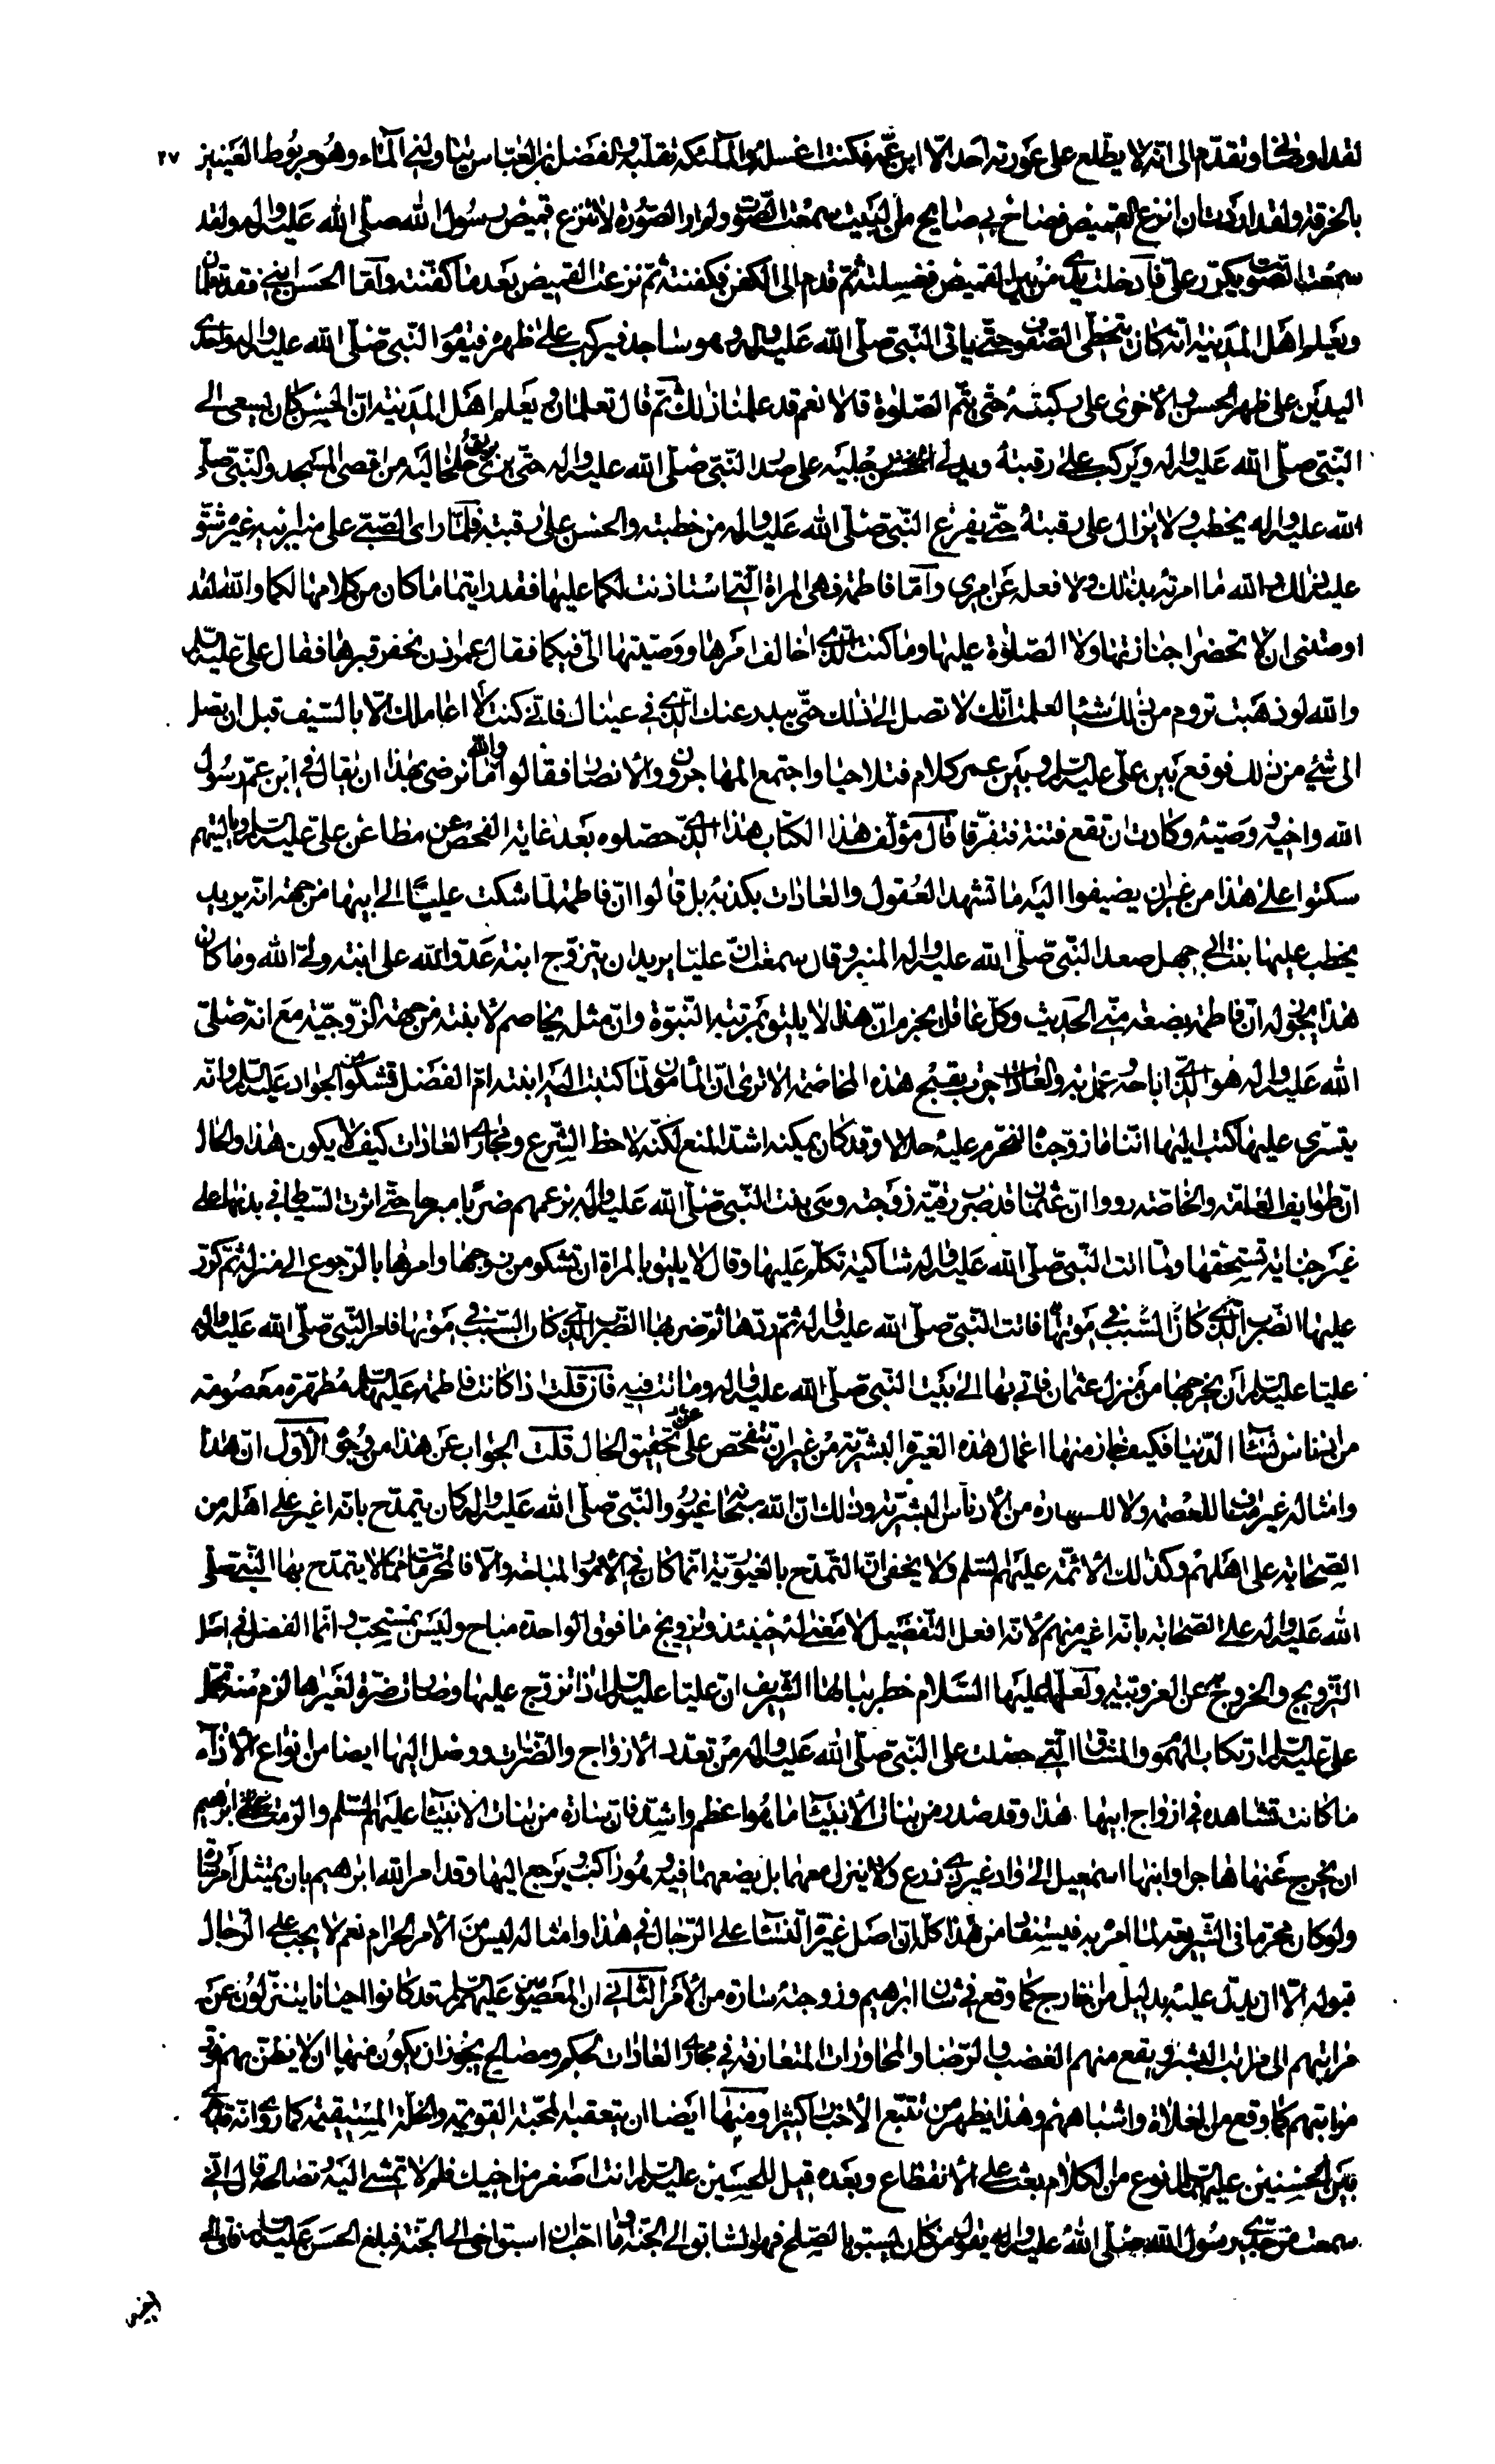 لقد اوصانى بذلك وتقدم الى انه لا يطلع على عورته احد الا ابن عمه فكنت اغسله والملئكة تقلبه والفضل بن العباس يناولنى الماء وهو مربوط العينين ٢٧
بالخرقة ولقد اردت ان انزع القميص فصاح بى صايح من البيت سمعت الصوت ولم ار الصورة لا تنزع قميص رسول الله صلى الله عليه واله ولقد
سمعت الصوت يكرر على فادخلت يدى من بين القميص فغسلته ثم قدم الى الكفن فكفنته ثم نزعت القميص بعد ما كفنته واما الحسن ابنى فقد تعلمان
ويعلم اهل المدينة انه كان يتخطى الصفوف حتى ياتى النبى صلى الله عليه واله وهو ساجد فيركب على ظهره فيقوم النبى صلى الله عليه واله واحدى
اليدين على ظهر الحسن والاخرى على ركبته حتى يتم الصلوة قالا نعم قد علمنا ذلك ثم قال تعلمان ويعلم اهل المدينة ان الحسن كان يسعى الى
النبى صلى الله عليه واله ويركب على رقبته ويدلى الحسن رجليه على صدر النبى صلى الله عليه واله حتى يرى بريق خلخاليه من اقصى المسجد والنبى صلى
الله عليه واله يخطب ولا يزال على رقبته حتى يفرغ النبى صلى الله عليه واله من خطبته والحسن على رقبته فلما راى الصبى على منبر ابيه غيره شق
عليه ذلك والله ما امرته بذلك ولا فعله عن امرى واما فاطمة فهى المراة التى استاذنت لكما عليها فقد رايتما ما كان من كلامها لكما والله لقد
اوصتنى ان لا تحضرا جنازتها ولا الصلوة عليها وما كنت الذى اخالف امرها ووصيتها الى فيكما فقال عمر ن نحفر قبرها فقال على عليه السلام
والله لو ذهبت تروم من ذلك شيئا لعلمت انك لا تصل الى ذلك حتى يبدر عنك الذى فى عيناك فانى كنت لا اعاملك الا بالسيف قبل ان تصل
الى شئ من ذلك فوقع بين على عليه السلم وبين عمر كلام فتلاحيا واجتمع المهاجرون والانصار فقالوا والله ما نرضى بهذا ان يقال فى ابن عم رسول
الله واخيه ووصيه وكادت ان تقع فتنة فتفرقا قال مؤلف هذا الكتاب هذا الذى حصلوه بعد غاية الفحص عن مطاعن على عليه السلم ويا ليتهم
سكتوا على هذا من غير ان يضيفوا اليه ما تشهد العقول والعادات بكذبه بل قالوا ان فاطمة لما شكت عليا الى ابيها من جهة انه يريد
يخطب عليها بنت ابى جهل صعد النبى صلى الله عليه واله المنبر وقال سمعت ان عليا يريد ان يتزوج ابنة عدو الله على ابنة ولى الله وما كان
هذا يجوز له ان فاطمة بضعة منى الحديث وكل عاقل يجزم ان هذا لا يليق بمرتبة النبوة وان مثله يخاصم لابنته من جهة الزوجية مع انه صلى
الله عليه واله هو الذى اباحه وعمل به والعادات جرت بقبح هذه المخاصمة الا ترى ان المأمون لما كتبت اليه ابنته ام الفضل تشكو من الجواد عليه السلم وانه
يتسرى عليها كتب اليها اننا ما زوجناه لنحرم عليه حلالا وقد كان يمكنه اشد المنع لكنه لاحظ الشرع ومجارى العادات كيف لا يكون هذا والحال
ان طوايف العامة والخاصة رووا ان عثمان قد ضرب رقية زوجته وهى بنت النبى صلى الله عليه واله بزعمهم ضربا مبرحا حتى اثرت السياط فى بدنها على
غير جناية تستحقها ولما اتت النبى صلى الله عليه واله شاكية تكلم عليها وقال لا يليق بالمراة ان تشكو من زوجها وامرها بالرجوع الى منزله ثم كرر
عليها الضرب الذى كان السبب فى موتها فاتت النبى صلى الله عليه واله ثم ردها ثم ضربها الضرب الذى كان السبب فى موتها فامر النبى صلى الله عليه واله
عليا عليه السلم ان يخرجها من منزل عثمان فاتى بها الى بيت النبى صلى الله عليه واله وماتت فيه فان قلت اذا كانت فاطمة عليها السلم مطهرة معصومة
من ادناس نساء الدنيا فكيف جاز منها اعمال هذه الغيرة البشرية من غير ان تتفحص عن على تحقيق الحال قلت الجواب عن هذا من وجوه الاول ان هذا
وامثاله غير مناف للعصمة ولا للطهارة من الادناس البشرية وذلك ان الله سبحانه غيور والنبى صلى الله عليه واله كان يتمدح بانه اغير على اهله من
الصحابة على اهلهم وكذلك الائمة عليهم السلم ولا يخفى ان التمدح بالغيورية انما كان فى الامور المباحة والا فالمحرمات مما لا يتمدح بها النبى صلى
الله عليه واله على الصحابة بانه اغير منهم لانه افعل التفضيل لا معنى له حينئذ وتزويج ما فوق الواحدة مباح وليس بمستحب وانما الفضل فى اصل
التزويج والخروج عن العزوبية ولعلها عليها السلام خطر ببالها الشريف ان عليا عليه السلم اذا تزوج عليها وصارت ضرة لغيرها لزم منه تحمل
على عليه السلم ارتكاب الهموم والمشاق التى حصلت على النبى صلى الله عليه واله من تعدد الازواج والضرات ووصل اليها ايضا من انواع الاذاء
ما كانت تشاهده فى ازواج ابيها هذا وقد صدر من بنات الانبياء ما هو اعظم واشد فان سارة من بنات الانبياء عليهم السلم والزمت على ابرهيم
ان يخرج عنها هاجر وابنها اسمعيل الى واد غير ذى زرع ولا ينزل معهما بل يضعهما فيه وهو راكب ويرجع اليها وقد امر الله ابرهيم بان يمتثل امر سارة
ولو كان محرما فى الشريعة لما امر به فيستفاد من هذا كله ان اصل غيرة النساء على الرجال فى هذا وامثاله ليس من الامر الحرام نعم لا يجب على الرجال
قبوله الا ان يدل عليه بدليل من خارج كما وقع فى شان ابرهيم وزوجته سارة من الامر الثانى ان المعصومين عليهم السلم قد كانوا احيانا يتنزلون عن
مراتبهم الى مراتب البشر ويقع منهم الغضب والرضا والمحاورات المتعارفة فى مجارى العادات لحكم ومصالح يجوز ان يكون منها ان لا يظن بهم فوق
مراتبهم كما وقع من الغلاة واشباههم وهذا يظهر من تتبع الاخبار كثيرا ومنها ايضا ان يتعقبه المحبة القويمة والخلة المستقيمة كما روى انه قد جرى
بين الحسنين عليهما السلم نوع من الكلام بعث على الانقطاع وبعده قيل للحسين عليه السلم انت اصغر من اخيك فلم لا تمشى اليه وتصالحه قال انى
سمعت من جدى رسول الله صلى الله عليه واله يقول من كان يسبق بالصلح فهو السابق الى الجنة وما احب ان استبق اخى الى الجنة فبلغ الحسن عليه السلم فاتى الى
اخيه